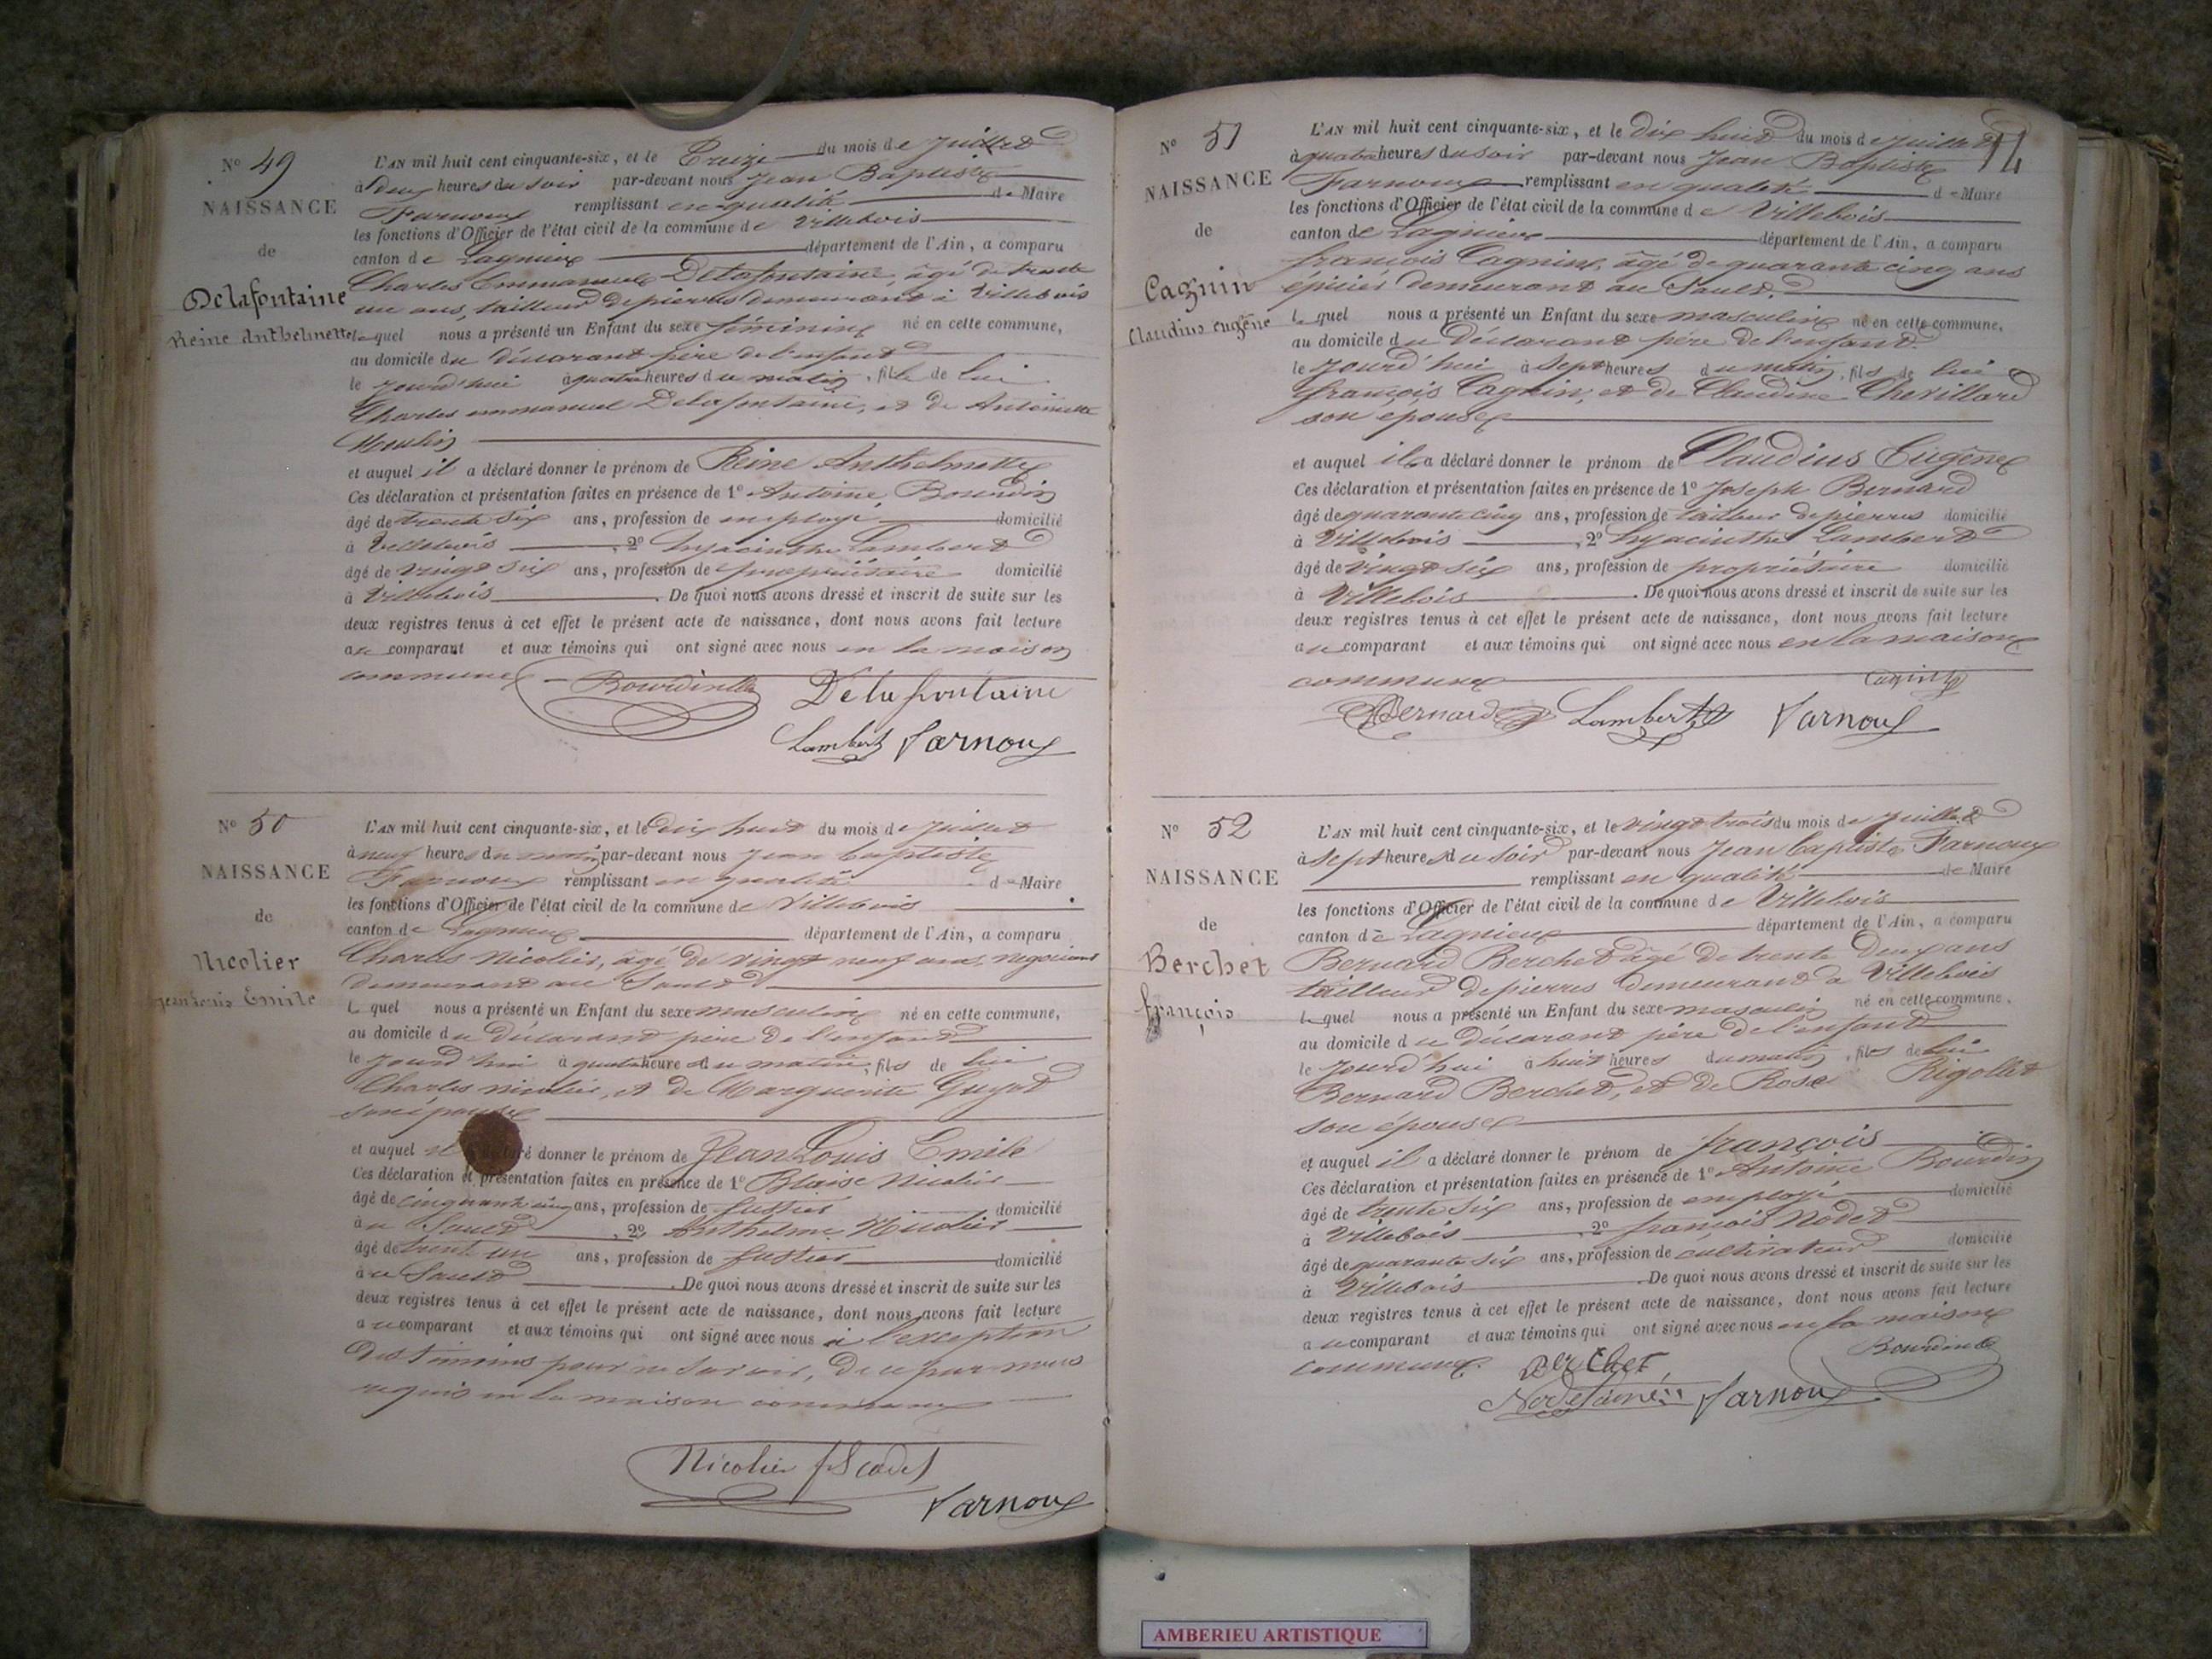 N° 49
NAISSANCE
de
Delafontaine
Reine Anthelmette
L'AN mil huit cent cinquante-six, et le Treize du mois de Juillet
à deux heures du soir par-devant nous Jean Baptiste
Farnoux remplissant en qualité de Maire
les fonctions d'Officier de l'état civil de la commune de Villebois
canton de Lagnieu département de l'Ain, a comparu
Charles Emmanuel Delafontaine, âgé de trente
un ans, tailleur de pierres demeurant à Villebois
lequel nous a présenté un Enfant du sexe féminin né en cette commune,
au domicile du déclarant père de l'enfant
le jourd'hui à quatre heures du matin, fille de lui
Charles emmanuel Delafontaine, et de Antoinette
Moulin
et auquel il a déclaré donner le prénom de Reine Anthelmette
Ces déclaration et présentation faites en présence de 1° Antoine Bourdin
âgé de trente six ans, profession de employé domicilié
à Villebois, 2° hyacinthe Lambert
âgé de vingt six ans, profession de propriétaire domicilié
à Villebois. De quoi nous avons dressé et inscrit de suite sur les
deux registres tenus à cet effet le présent acte de naissance, dont nous avons fait lecture
au comparant et aux témoins qui ont signé avec nous en la maison
commune
Delafontaine
Lambert Farnoux
N° 50
NAISSANCE
de
Nicolier
jean Louis Emile
L'AN mil huit cent cinquante-six, et le dix huit du mois de Juillet
à neuf heures du matin par-devant nous Jean baptiste
Farnoux remplissant en qualité de Maire
les fonctions d'Officier de l'état civil de la commune de Villebois
canton de Lagnieu département de l'Ain, a comparu
Charles Nicolier, âgé de vingt neuf ans, négociant
demeurant au Sault
lequel nous a présenté un Enfant du sexe masculin né en cette commune,
au domicile du déclarant père de l'enfant
le jourd'hui à quatre heure du matin, fils de lui
Charles nicolier, et de Marguerite Guyot
son épouse
et auquel il déclaré donner le prénom de Jean Louis Emile
Ces déclaration et présentation faites en présence de 1° Blaise Nicolier
âgé de cinquante cinq ans, profession de fustier domicilié
au Sault, 2° Anthelme Nicolier
âgé de trent un ans, profession de fustier domicilié
au Sault. De quoi nous avons dressé et inscrit de suite sur les
deux registres tenus à cet effet le présent acte de naissance, dont nous avons fait lecture
au comparant et aux témoins qui ont signé avec nous à l'exception
des témoins pour ne savoir, de ce par nous
requis en la maison commune
Nicolier
Farnoux
14
N° 51
NAISSANCE
de
Cagnin
Claudius eugène
L'AN mil huit cent cinquante-six, et le dix huit du mois de Juillet
à quatre heures du soir par-devant nous Jean Baptiste
Farnoux remplissant en qualité de Maire
les fonctions d'Officier de l'état civil de la commune de Villebois
canton de Lagnieu département de l'Ain, a comparu
françois Cagnin, âgé de quarante cinq ans
épicier demeurant au Sault,
lequel nous a présenté un Enfant du sexe masculin né en cette commune,
au domicile du Déclarant père de l'enfant
le jourd'hui à sept heures du matin, fils de lui
françois Cagnin, et de Claudine Chevillard
son épouse
et auquel il a déclaré donner le prénom de Claudius Eugène
Ces déclaration et présentation faites en présence de 1° Joseph Bernard
âgé de quarante cinq ans, profession de tailleur de pierres domicilié
à Villebois, 2° hyacinthe Lambert
âgé de vingt six ans, profession de propriétaire domicilié
à Villebois. De quoi nous avons dressé et inscrit de suite sur les
deux registres tenus à cet effet le présent acte de naissance, dont nous avons fait lecture
au comparant et aux témoins qui ont signé avec nous en la maison
commune Cagnin
Bernard Lambert Farnoux
N° 52
NAISSANCE
de
Berchet
françois
L'AN mil huit cent cinquante-six, et le vingt trois du mois de Juillet
à sept heures du soir par-devant nous Jean baptiste Farnoux
remplissant en qualité de Maire
les fonctions d'Officier de l'état civil de la commune de Villebois
canton de Lagnieu département de l'Ain, a comparu
Bernard Berchet âgé de trente Deux ans
tailleur de pierres demeurant à Villebois
lequel nous a présenté un Enfant du sexe masculin né en cette commune,
au domicile du déclarant père de l'enfant
le jourd'hui à huit heures du matin, fils de lui
Bernard Berchet, et de Rose Rigollet
son épouse
et auquel il a déclaré donner le prénom de françois
Ces déclaration et présentation faites en présence de 1° Antoine Bourdin
âgé de trente six ans, profession de employé domicilié
à Villebois 2° françois Nodet
âgé de quarante six ans, profession de cultivateur domicilié
à Villebois. De quoi nous avons dressé et inscrit de suite sur les
deux registres tenus à cet effet le présent acte de naissance, dont nous avons fait lecture
au comparant et aux témoins qui ont signé avec nous en la maison
commune. Berchet
Farnoux
AMBERIEU ARTISTIQUE